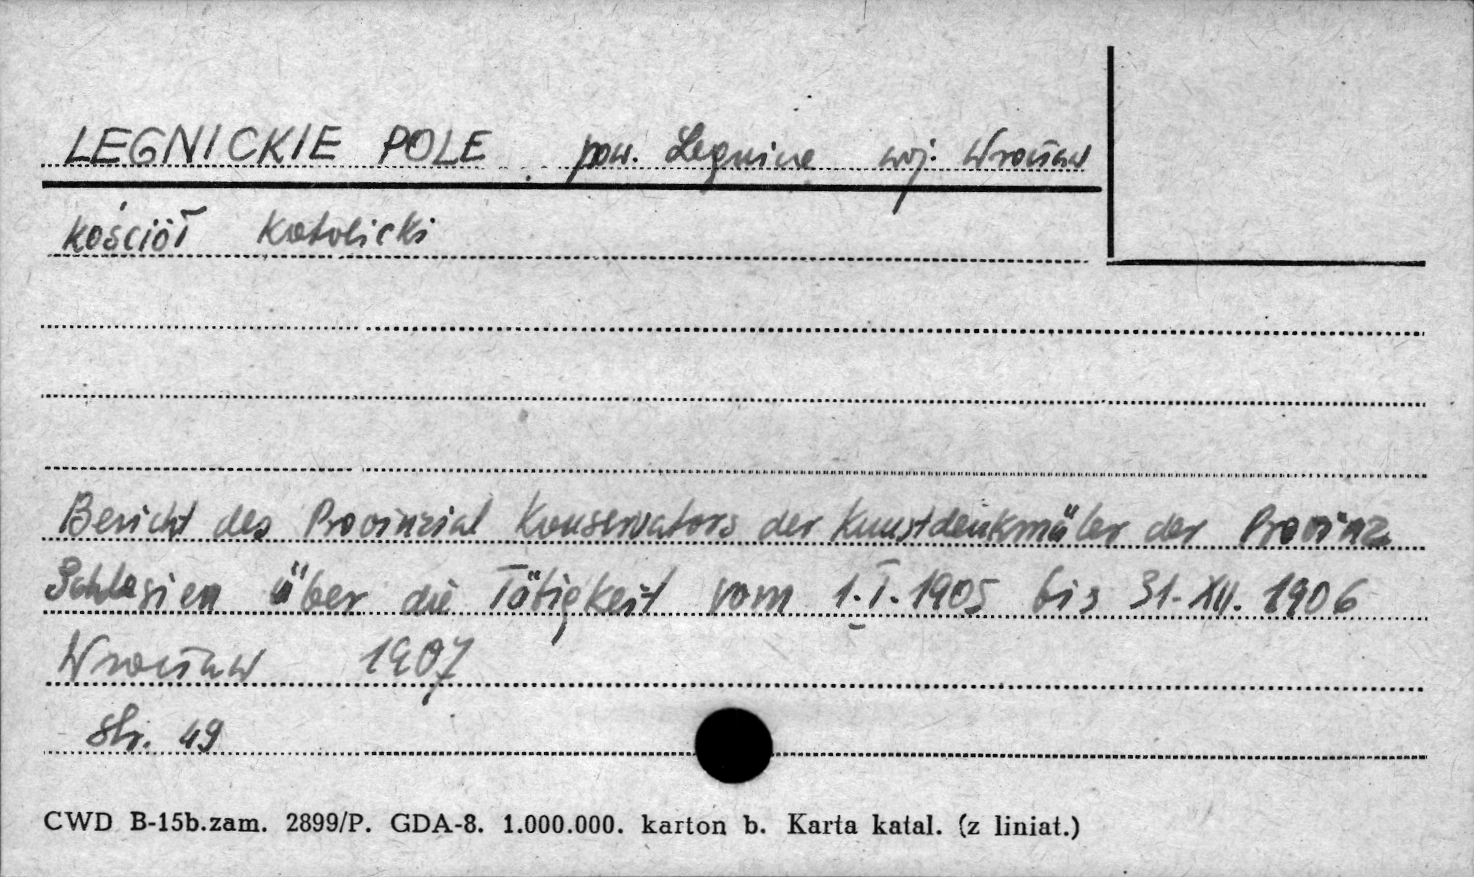 LEGNICKIE POLE pow. Legnica woj. Wrocław
kościół katolicki
Bericht des Provinzial Konservators der Kunstdenkmäler der Provinz
Schlesien über die Tätigkeit vom 1.I.1905 bis 31.XII.1906
Wrocław 1907
str. 49
CWD B-15b.zam. 2899/P. GDA-8. 1.000.000. karton b. Karta katal. (z liniat.)